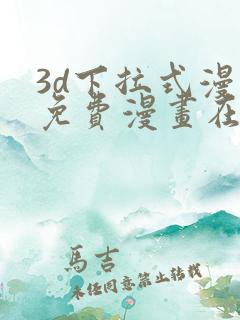 3d下拉式漫
免費漫畫在
馬吉
未经同意禁止转载